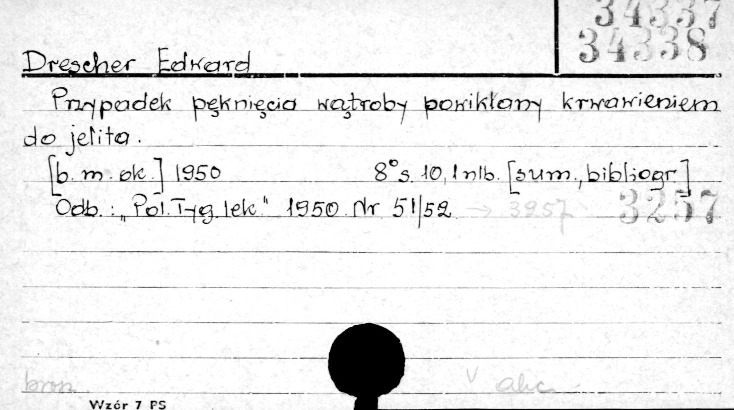 34337
34338
Drescher Edward
Przypadek pęknięcia wątroby powikłany krwawieniem
do jelita.
[b.m.ok.] 1950 8° s. 10, 1 nlb. [sum., bibliogr.]
Odb.: „Pol.Tyg.lek" 1950 Nr 51/52 → 3257 3257
brosz.
Wzór 7 PS